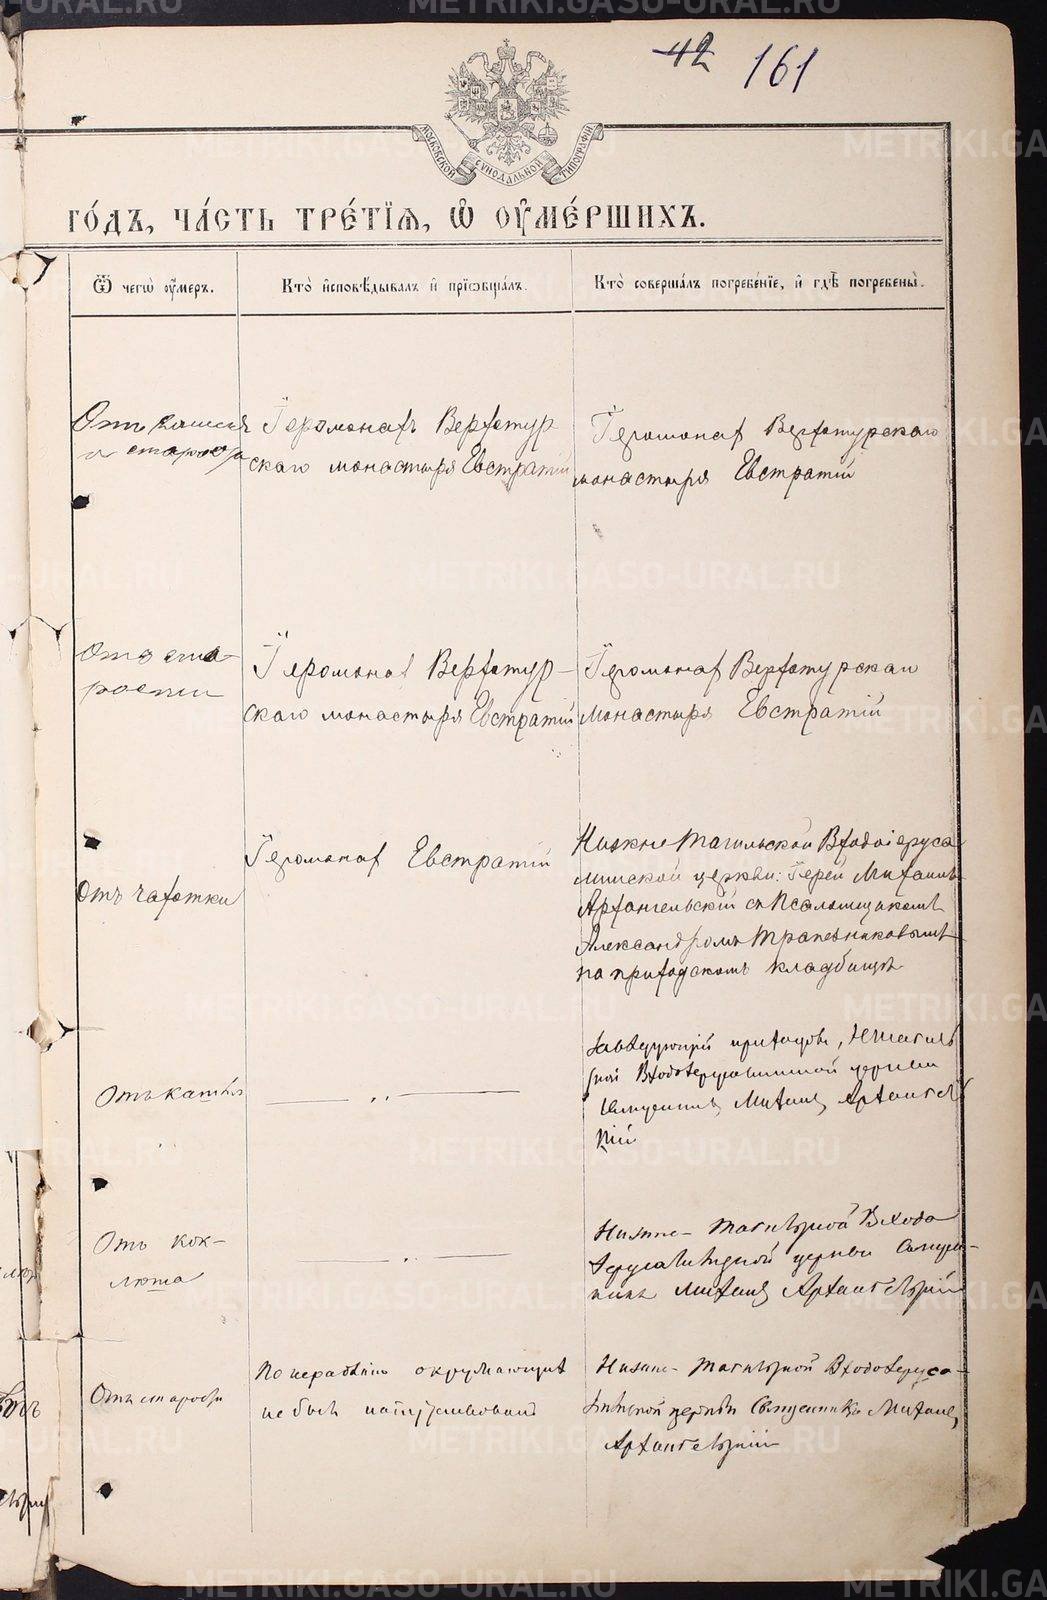 42 161
МОСКОВСКОЙ СѴНОДАЛЬНОЙ ТИПОГРАФІИ
ГО́ДЪ, ЧА́СТЬ ТРЕ́ТІѦ, Ѽ ОУ҆МЕ́РШИХЪ.
Ѿ чегѡ̀ оу҆́меръ.
Кто̀ и҆сповѣ́дывалъ и҆ прїѡбща́лъ.
Кто̀ соверша́лъ погребе́нїе, и҆ гдѣ̀ погребены̀.
Отъ кашля
и старости
Іеромонахъ Верхотур
скаго монастыря Евстратій
Іеромонах Верхотурскаго
монастыря Евстратій
Отъ ста-
рости
Іеромонах Верхотур-
скаго монастыря Евстратій
Іеромонах Верхотурскаго
монастыря Евстратій
Отъ чахотки
Іеромонах Евстратій
Нижне Тагильской Входоіеруса
лимской церкви: Іерей Михаилъ
Архангельскій съ Псаломщикомъ
Александромъ Трапезниковымъ
на приходскомъ кладбищѣ
Отъ кашля
— ,, —
Завѣдующій приходом,
Входоіерусалимской церкви
Священникъ Михаил Архангель
скій
Отъ кок-
люша
— ,, —
Нижне-Тагильской Входо
іерусалимской церкви Священ-
никъ Михаил Архангельскій
Отъ старости
По нерадѣнію окружающихъ
не былъ напутствованъ
Нижне-Тагильской Входоіеруса-
лимской церкви Священникъ Михаил
Архангельскій
METRIKI.GASO-URAL.RU